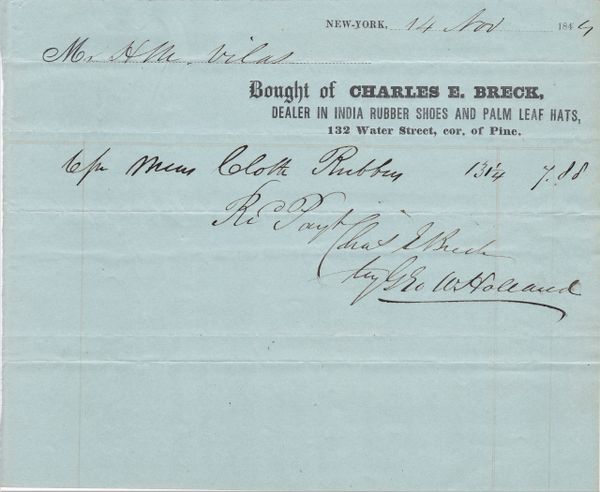 NEW-YORK, 14 Nov 184
Mr H M. Vilas
Bought of CHARLES E. BRECK,
DEALER IN INDIA RUBBER SHOES AND PALM LEAF HATS,
132 Water Street, cor. of Pine.
6/pr Mens Cloth Rubbers 7.88
Rd Payt
Chas E Breck
by Geo W Holland